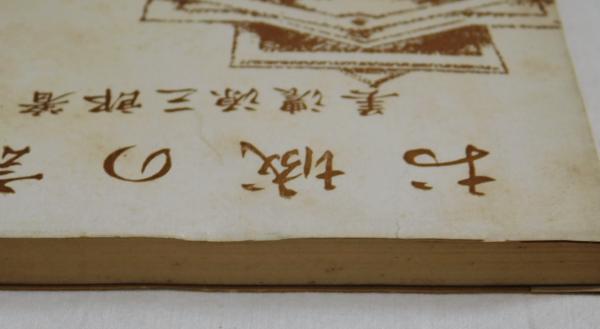 お城の
美濃源三郎著